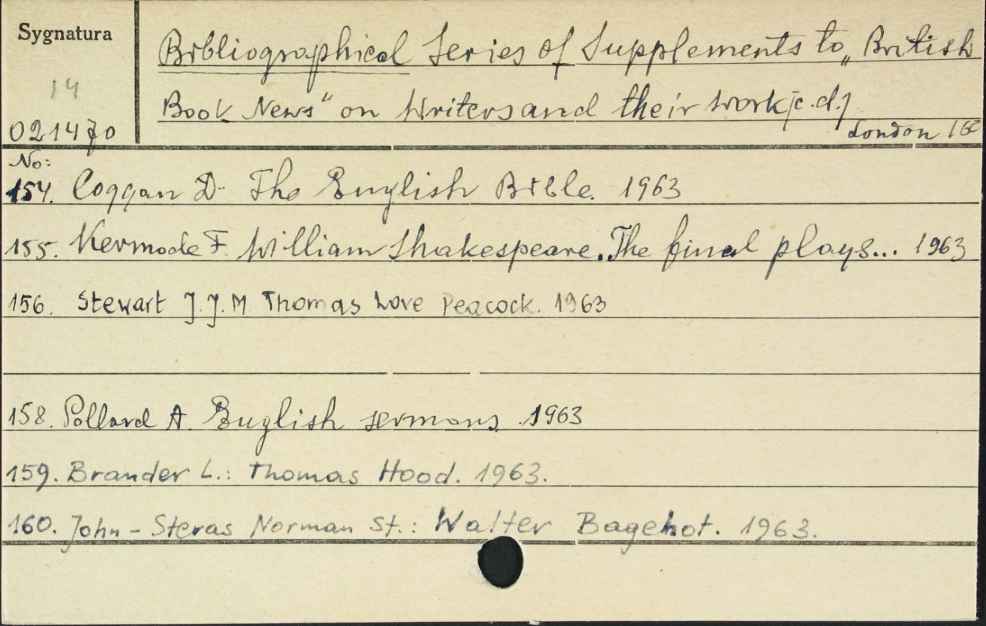 Sygnatura
14
021470
Bibliographical Series of Supplements to „British
Book News" on Writers and their work /c.d./
London 16°
No:
154. Coggan D. The English Bible. 1963
155. Kermode F. William Shakespeare. The final plays... 1963
156. Stewart J.J.M Thomas Love Peacock. 1963
158. Pollard A. English sermons 1963
159. Brander L.: Thomas Hood. 1963.
160. John-Steras Norman St.: Walter Bagehot. 1963.